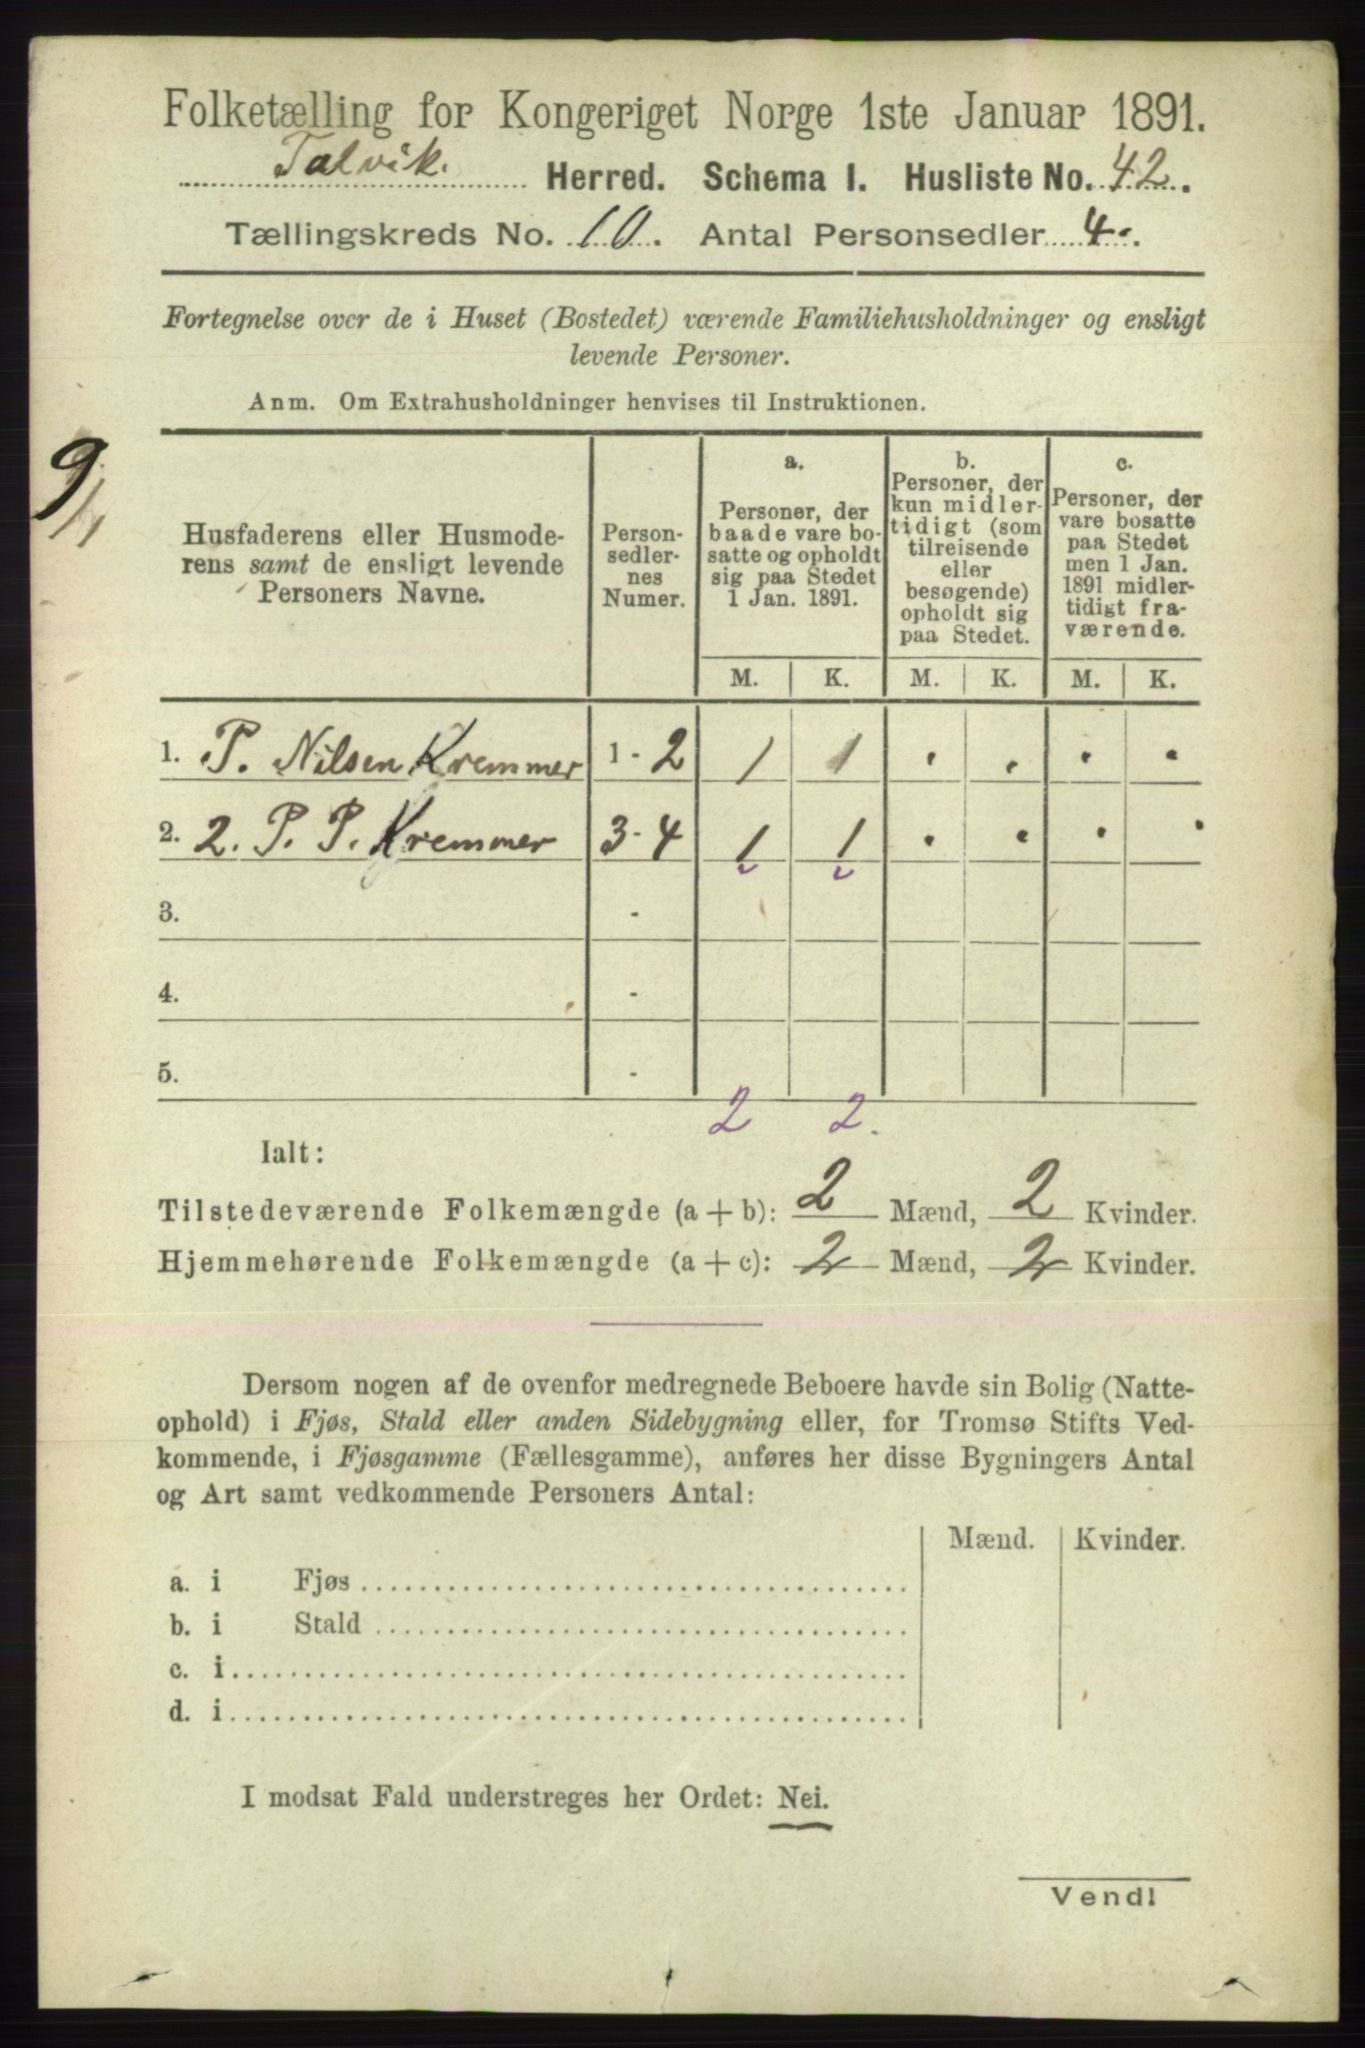 Folketælling for Kongeriget Norge 1ste Januar 1891.
Talvik. Herred. Schema I. Husliste No. 42.
Tællingskreds No. 10. Antal Personsedler 4.
Fortegnelse over de i Huset (Bostedet) værende Familiehusholdninger og ensligt
levende Personer.
Anm. Om Extrahusholdninger henvises til Instruktionen.
9/1
Husfaderens eller Husmode-
rens samt de ensligt levende
Personers Navne.
Person-
sedler-
nes
Numer.
a.
Personer, der
baade vare bo-
satte og opholdt
sig paa Stedet
1 Jan. 1891.
b.
Personer, der
kun midler-
tidigt (som
tilreisende
eller
besøgende)
opholdt sig
paa Stedet.
c.
Personer, der
vare bosatte
paa Stedet
men 1 Jan.
1891 midler-
tidigt fra-
værende.
M. K. M. K. M. K.
1. P. Nilsen Kremmer 1 - 2 1 1 . . . .
2. 2. P. P. Kremmer 3 - 4 1 1 . . . .
3. -
4. -
5. -
2 2.
Ialt:
Tilstedeværende Folkemængde (a + b): 2 Mænd, 2 Kvinder.
Hjemmehørende Folkemængde (a + c): 2 Mænd, 2 Kvinder.
Dersom nogen af de ovenfor medregnede Beboere havde sin Bolig (Natte-
ophold) i Fjøs, Stald eller anden Sidebygning eller, for Tromsø Stifts Ved-
kommende, i Fjøsgamme (Fællesgamme), anføres her disse Bygningers Antal
og Art samt vedkommende Personers Antal:
Mænd. Kvinder.
a. i Fjøs
b. i Stald
c. i
d. i
I modsat Fald understreges her Ordet: Nei.
Vend!